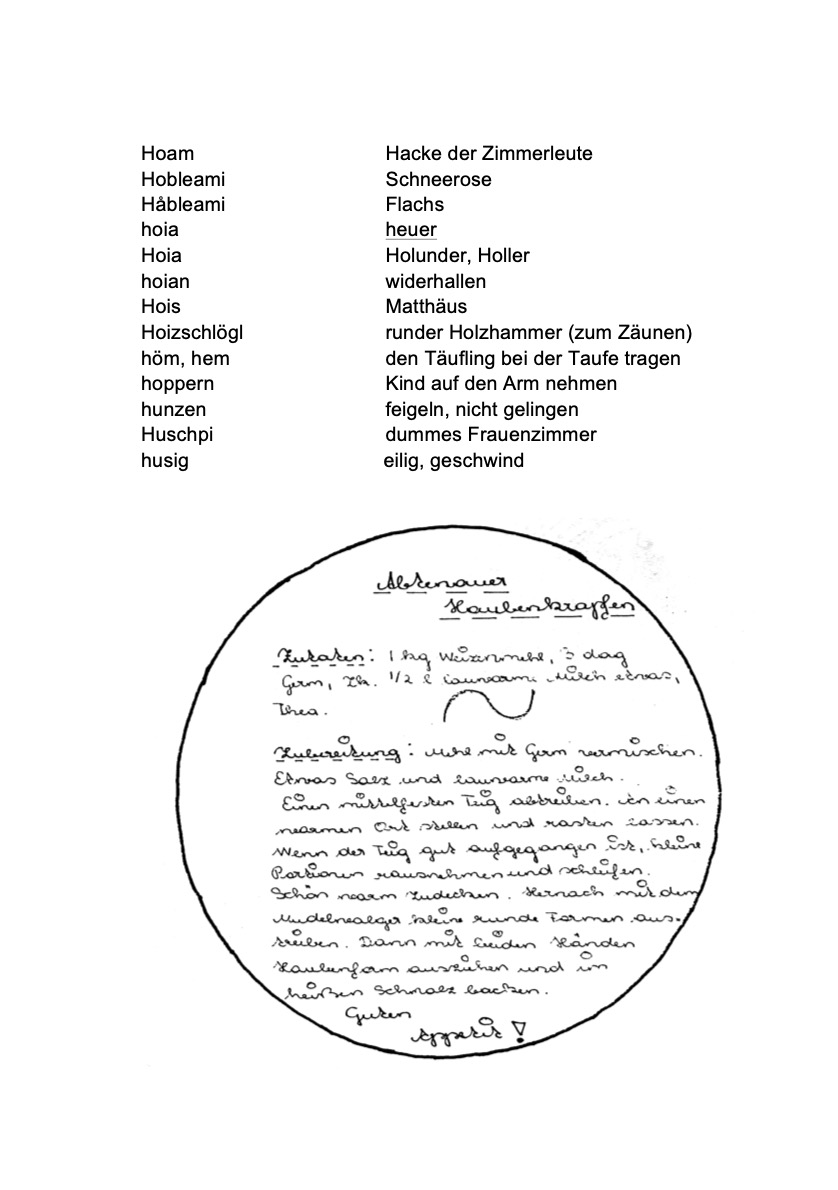 Hoam Hacke der Zimmerleute
Hobleami Schneerose
Håbleami Flachs
hoia heuer
Hoia Holunder, Holler
hoian widerhallen
Hois Matthäus
Hoizschlögl runder Holzhammer (zum Zäunen)
höm, hem den Täufling bei der Taufe tragen
hoppern Kind auf den Arm nehmen
hunzen feigeln, nicht gelingen
Huschpi dummes Frauenzimmer
husig eilig, geschwind
Abtenauer
Haubenkrapfen
Zutaten: 1 kg Weizenmehl, 3 dag
Germ, 1/2 l lauwarme Milch etwas,
Zubereitung: Mehl mit Germ vermischen.
Etwas Salz und lauwarme Milch.
Einen mittelfesten Teig abtreiben. An einen
warmen Ort stellen und rasten lassen.
Wenn der Teig gut aufgegangen ist, kleine
Portionen rausnehmen und schleifen.
Schön warm zudecken. Hernach mit dem
Nudelwalger kleine runde Formen aus-
treiben. Dann mit beiden Händen
Haubenform ausziehen und im
heißen Schmalz backen.
Guten
Appetit!